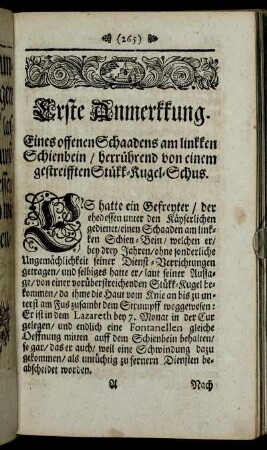 (265)
Erste Anmerkkung.
Eines offenen Schaadens am linkken
Schienbein / herrührend von einem
gestreifften Stükk-Kugel-Schus.
ES hatte ein Gefreyter / der
ehedessen unter den Käyserlichen
gedienet / einen Schaaden am link-
ken Schien-Bein / welchen er /
bey drey Jahren / ohne sonderliche
Ungemächlichkeit seiner Dienst-Verrichtungen
getragen / und selbiges hatte er / laut seiner Aussa-
ge / von einer vorüberstreichenden Stükk-Kugel be-
kommen / da ihme die Haut vom Knie an bis zu un-
terst am Fus zusambt dem Strumpff weggewesen:
Er ist in dem Lazareth bey 7. Monat in der Cur
gelegen / und endlich eine Fontanellen gleiche
Oeffnung mitten auff dem Schienbein behalten /
so gar / das er auch / weil eine Schwindung dazu
gekommen / als untüchtig zu fernern Diensten be-
abscheidet worden.
A Nach